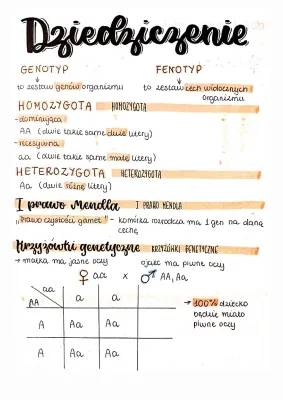 Dziedziczenie
GENOTYP FENOTYP
to zestaw genów organizmu to zestaw cech widocznych
organizmu
HOMOZYGOTA HOMOZYGOTA
-dominująca
AA (dwie takie same duże litery)
-recesywna
aa (dwie takie same małe litery)
HETEROZYGOTA HETEROZYGOTA
Aa (dwie różne litery)
I prawo Mendla I PRAWO MENDLA
"Prawo czystości gamet" - komórka rozrodcza ma 1 gen na daną
cechę
Krzyżówki genetyczne KRZYŻÓWKI GENETYCZNE
→ matka ma jasne oczy ojciec ma piwne oczy
♀ aa x ♂ AA, Aa
aa a a
AA
A Aa Aa
A Aa Aa
→ 100% dziecko
będzie miało
piwne oczy